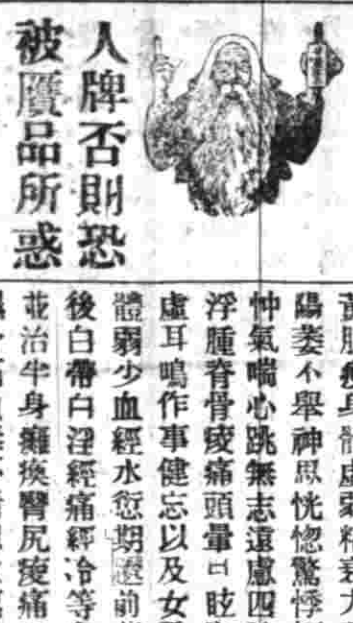 人牌否則恐
被贋品所惑
身體虛弱精衰
陽萎不舉神思恍惚驚悸
忡氣喘心跳無志遠慮四
浮腫脊骨痠痛頭暈目眩
虛耳鳴作事健忘以及女
體弱少血經水愆期
後白帶白淫經痛經冷等
並治半身癱瘓臀尻痠痛